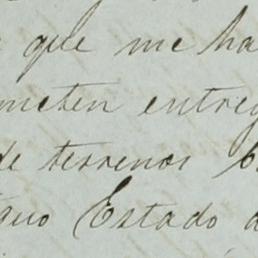 que me ha
meten entreg
de terrenos
Estado